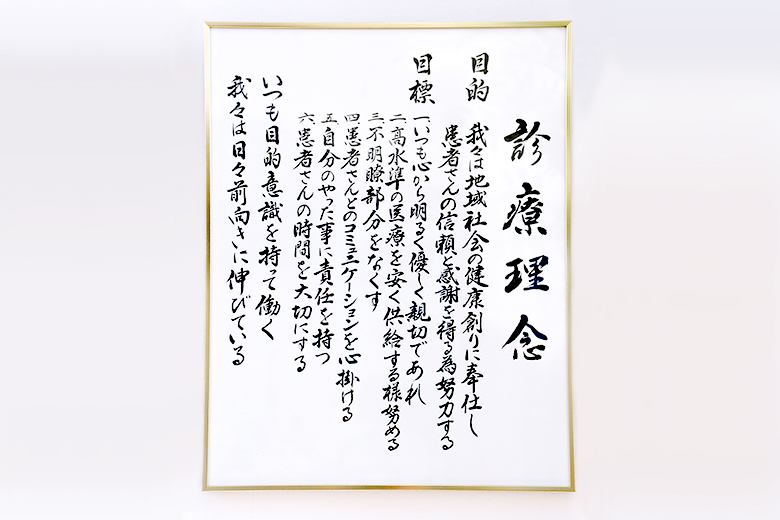 診療理念
目的
我々は地域社会の健康創りに奉仕し
患者さんの信頼と感謝を得る為努力する
目標
一、いつも心から明るく優しく親切であれ
二、高水準の医療を安く供給する様努める
三、不明瞭部分をなくす
四、患者さんとのコミュニケーションを心掛ける
五、自分のやった事に責任を持つ
六、患者さんの時間を大切にする
いつも目的意識を持って働く
我々は日々前向きに伸びている